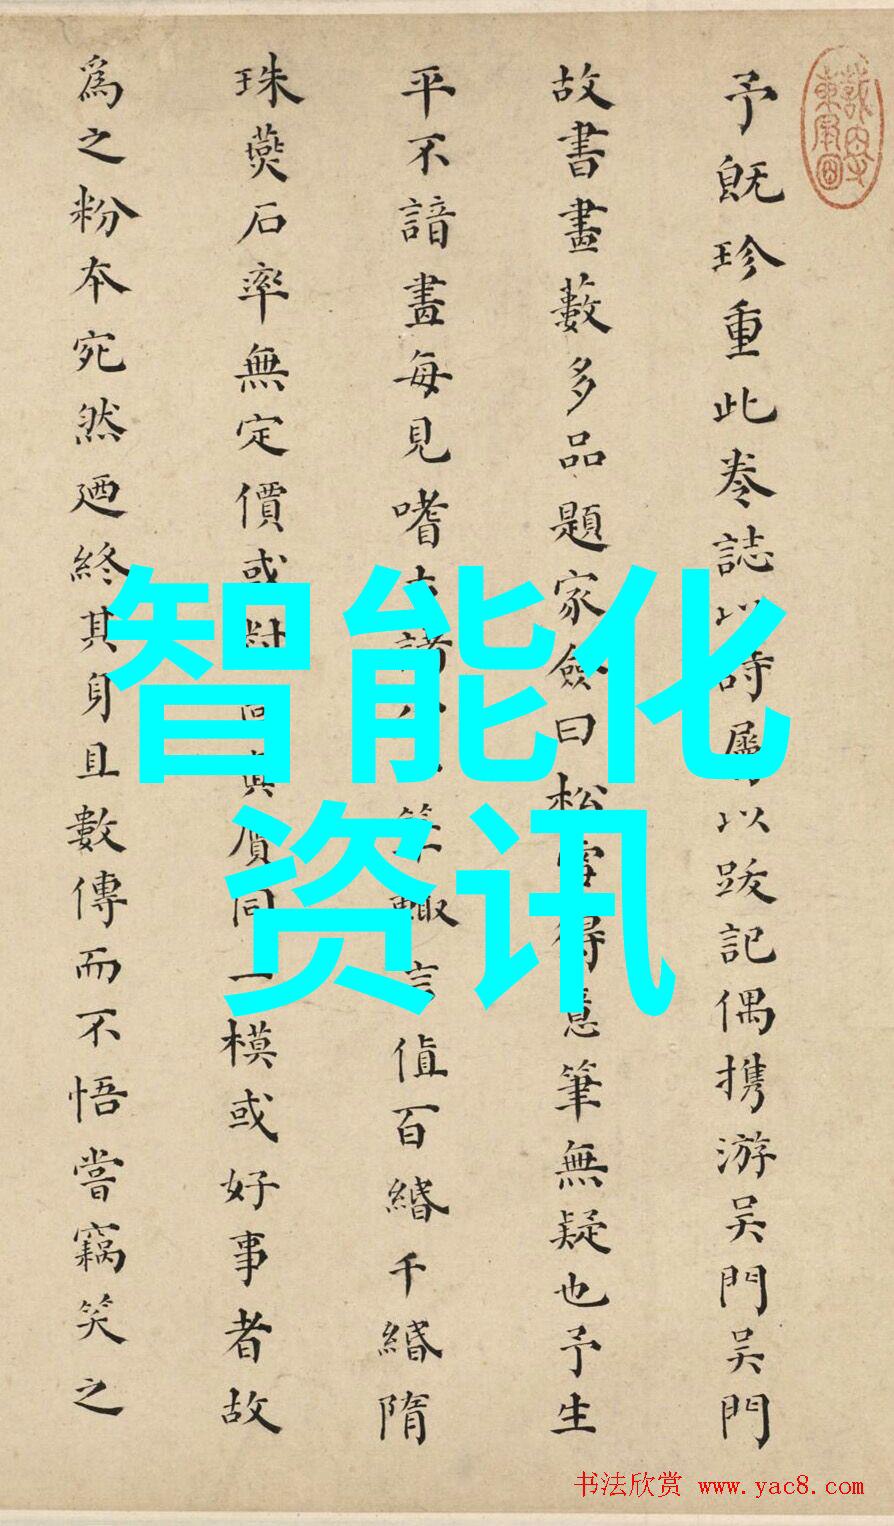 予既珍重此卷誌以詩以跋記偶携游吴門吴門
故書畫藪多品題家僉曰松雪得意筆無疑也予生
平不諳畫每見嗜諸輒言值百緡千緡隋
珠燕石率無定價或對真贋同一模或好事者故
為之粉本宛然廼終其身且數傳而不悟嘗竊笑之
智能化
资讯
书法欣赏 www.yac8.com